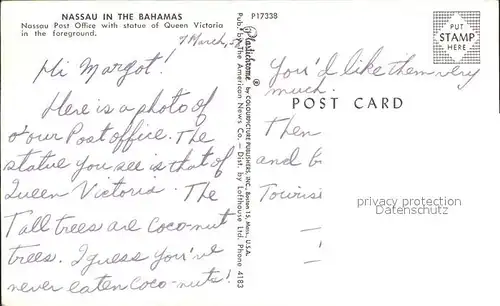 NASSAU IN THE BAHAMAS
Nassau Post Office with statue of Queen Victoria
in the foreground.
7 March, 
Hi Margot!
Here is a photo of
o'our Post office. The
statue you see is that of
Queen Victoria. The
Tall trees are Coco-nut
trees. I guess you've
never eaten Coco-nuts!
Pub. by The American News Co. — Dist. by Lofthouse Ltd. Phone 4183
Plastichrome ® by COLOURPICTURE PUBLISHERS, INC., Boston 15, Mass., U.S.A.
P17338
PUT
STAMP
HERE
You'd like them very
much.
POST CARD
Then
and
Touris
privacy protection
Datenschutz